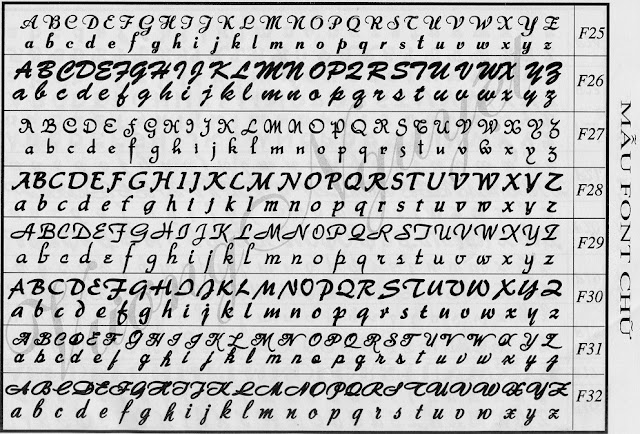 A B C D E F G H I J K L M N O P Q R S T U V W X Y Z
a b c d e f g h i j k l m n o p q r s t u v w x y z
F25
A B C D E F G H I J K L M N O P Q R S T U V W X Y Z
a b c d e f g h i j k l m n o p q r s t u v w x y z
F26
A B C D E F G H I J K L M N O P Q R S T U V W X Y Z
a b c d e f g h i j k l m n o p q r s t u v w x y z
F27
A B C D E F G H I J K L M N O P Q R S T U V W X Y Z
a b c d e f g h i j k l m n o p q r s t u v w x y z
F28
A B C D E F G H I J K L M N O P Q R S T U V W X Y Z
a b c d e f g h i j k l m n o p q r s t u v w x y z
F29
A B C D E F G H I J K L M N O P Q R S T U V W X Y Z
a b c d e f g h i j k l m n o p q r s t u v w x y z
F30
A B C D E F G H I J K L M N O P Q R S T U V W X Y Z
a b c d e f g h i j k l m n o p q r s t u v w x y z
F31
A B C D E F G H I J K L M N O P Q R S T U V W X Y Z
a b c d e f g h i j k l m n o p q r s t u v w x y z
F32
MẪU FONT CHỮ